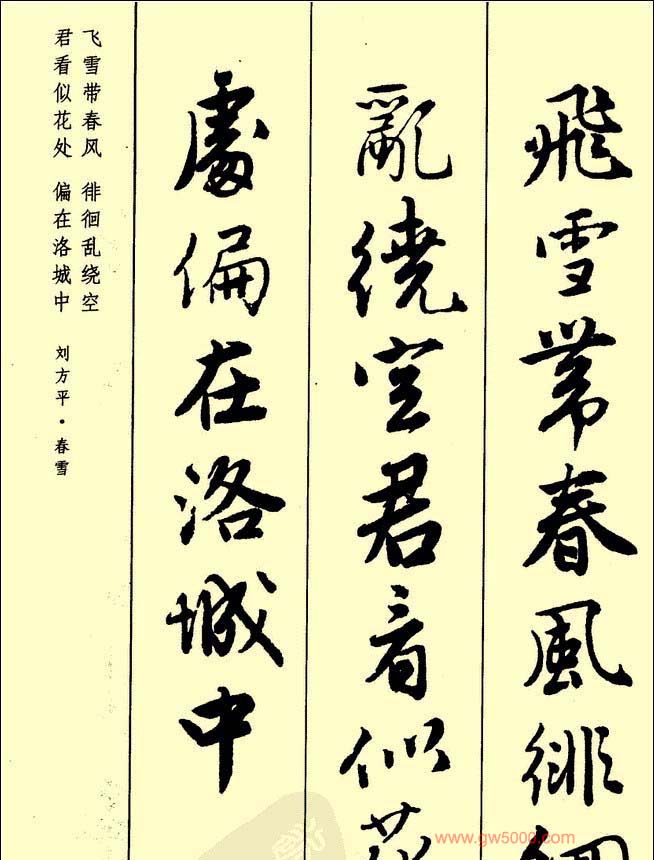 飛雪帶春風徘徊
亂繞空君看似花
處偏在洛城中
飞雪带春风 徘徊乱绕空
君看似花处 偏在洛城中 刘方平·春雪
www.gw5000.com